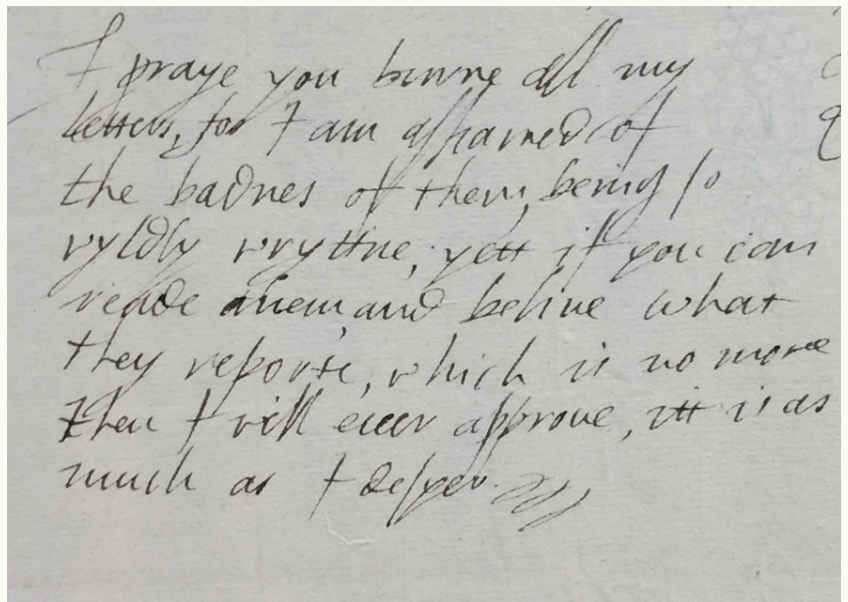 I praye you burne all my
letters, for I am ashamed of
the badnes of them, being so
vyldly wryttne, yett if you can
reade them, and belive what
they reporte, which is no more
then I will ever approve, itt is as
much as I desyer.